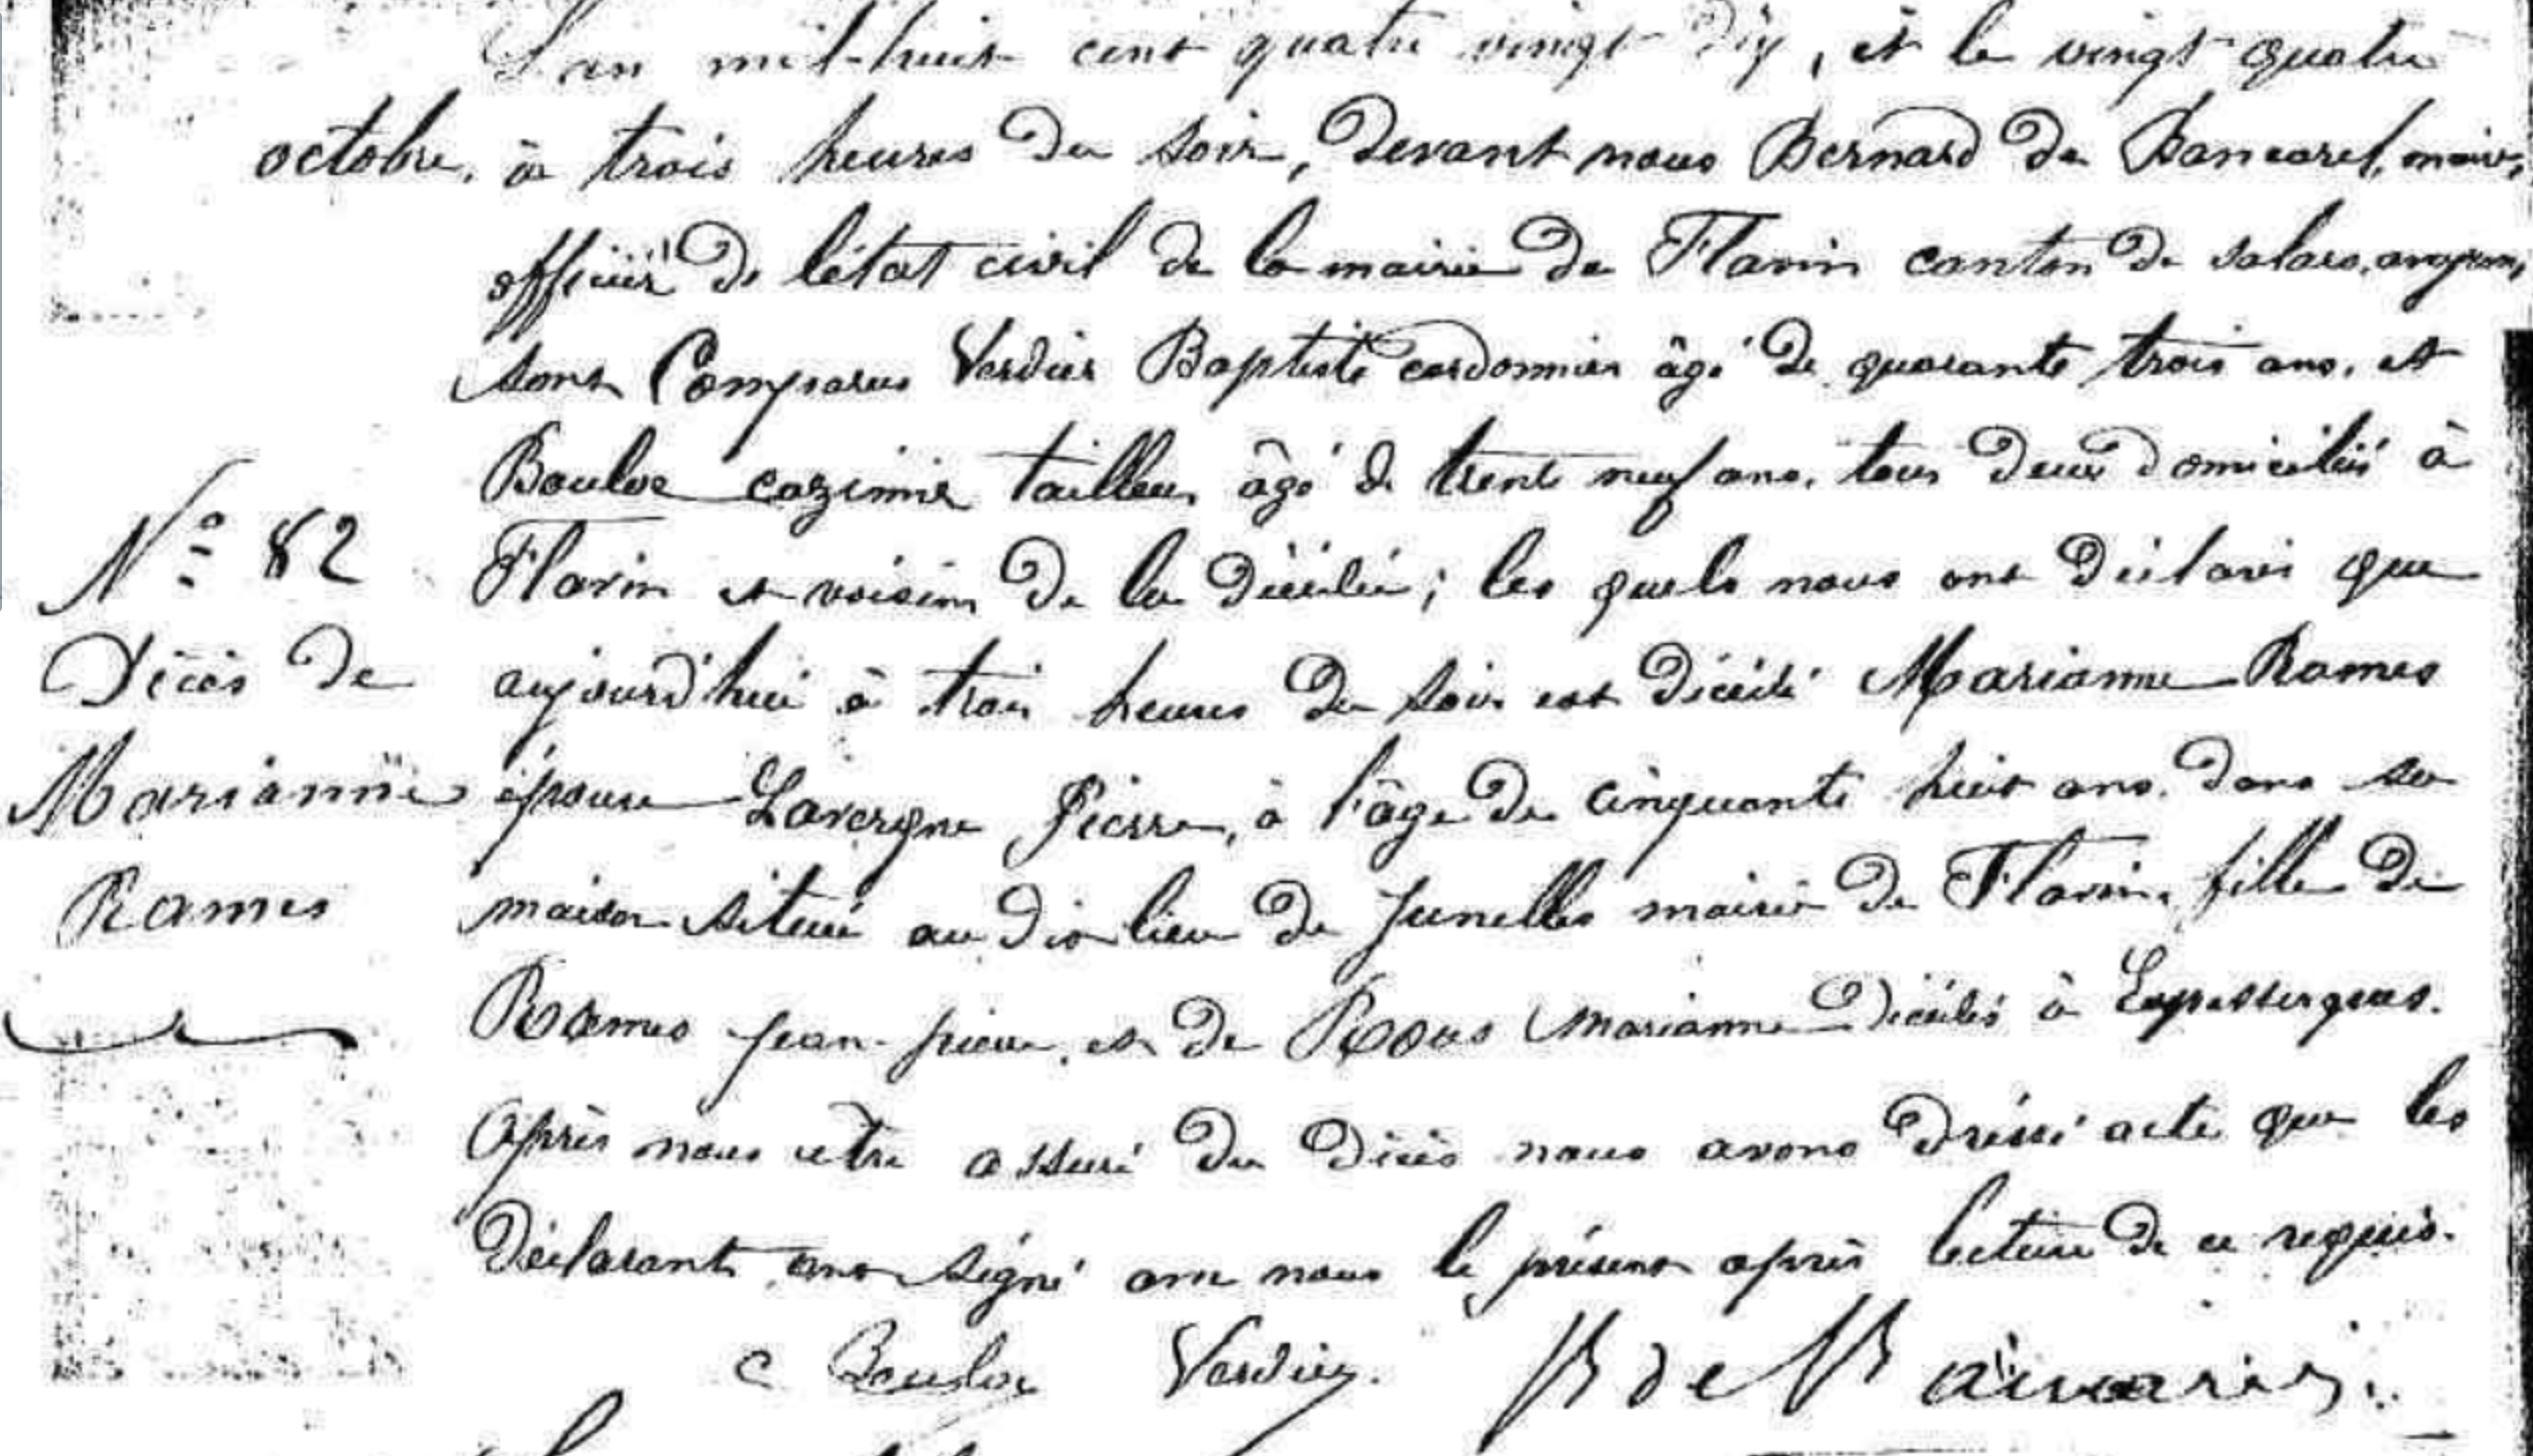 L'an mil-huit cent quatre vingt dix, et le vingt quatre
octobre, à trois heures du soir, devant nous Bernard de Bancarel, maire,
officier de l'état civil de la mairie de Flavin canton de salars, aveyron,
sont Comparus Verdier Baptiste cordonnier âgé de quarante trois ans, et
Bouloc cazimir tailleur, âgé de trente neuf ans, tous deux domiciliés à
Flavin et voisins de la décédée; les quels nous ont déclaré que
N° 82
aujourd'hui à trois heures du soir est décédé Marianne Rames
Décès de
épouse Lavergne Pierre, à l'âge de cinquante huit ans, dans sa
Marianne
maison située au dit lieu de Junelles mairie de Flavin, fille de
Rames
Rames jean-pierre, et de Rous marianne décédés à
Après nous etre assuré du décès nous avons dréssé acte que les
déclarant ont signé avec nous le présent après lecture de ce requis.
C Bouloc Verdier. B de